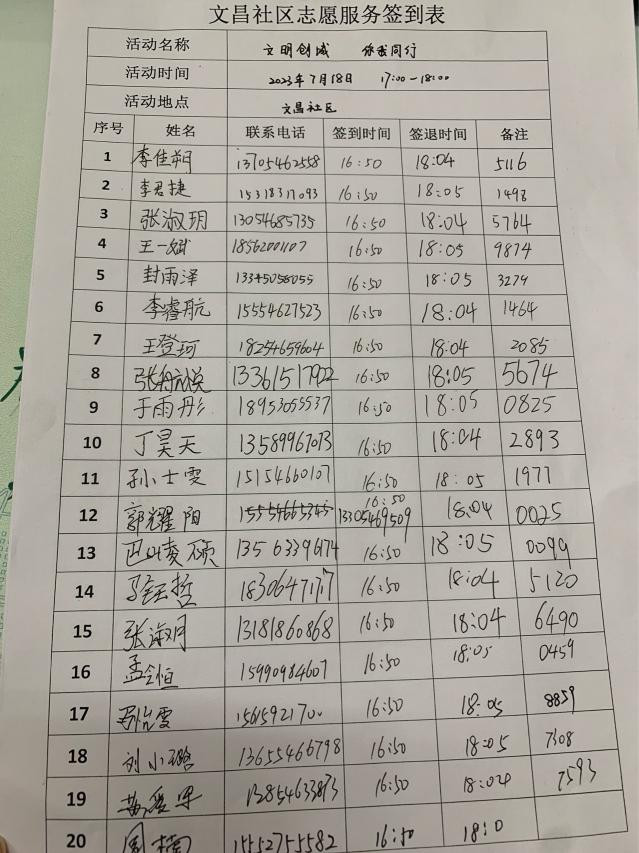 文昌社区志愿服务签到表
活动名称 文明创城 你我同行
活动时间 2023年7月18日 17:00-18:00
活动地点 文昌社区
序号 姓名 联系电话 签到时间 签退时间 备注
1 李佳朔 13705462558 16:50 18:04 5116
2 李君捷 15318317093 16:50 18:05 1498
3 张淑玥 13054685735 16:50 18:04 5764
4 王一斌 18562001107 16:50 18:05 9874
5 封雨泽 13345058055 16:50 18:05 3279
6 李睿航 15554627523 16:50 18:04 1464
7 王登珂 18254659604 16:50 18:04 2085
8 13361517922 16:50 18:05 5674
9 于雨彤 18953055537 16:50 18:05 0825
10 丁昊天 13589967073 16:50 18:04 2893
11 孙士雯 15154660107 16:50 18:05 1977
12 郭耀阳 15554665345 16:50 13305469509 18:04 0025
13 13563396174 16:50 18:05 0099
14 18306471717 16:50 18:04 5120
15 张淑月 13181860868 16:50 18:04 6490
16 孟令恒 15990984607 16:50 18:05 0459
17 16:50 18:05 8859
18 刘小璐 13655466798 16:50 18:05 7308
19 16:50 18:04 7593
20 周楠 15552755582 16:50 18:0